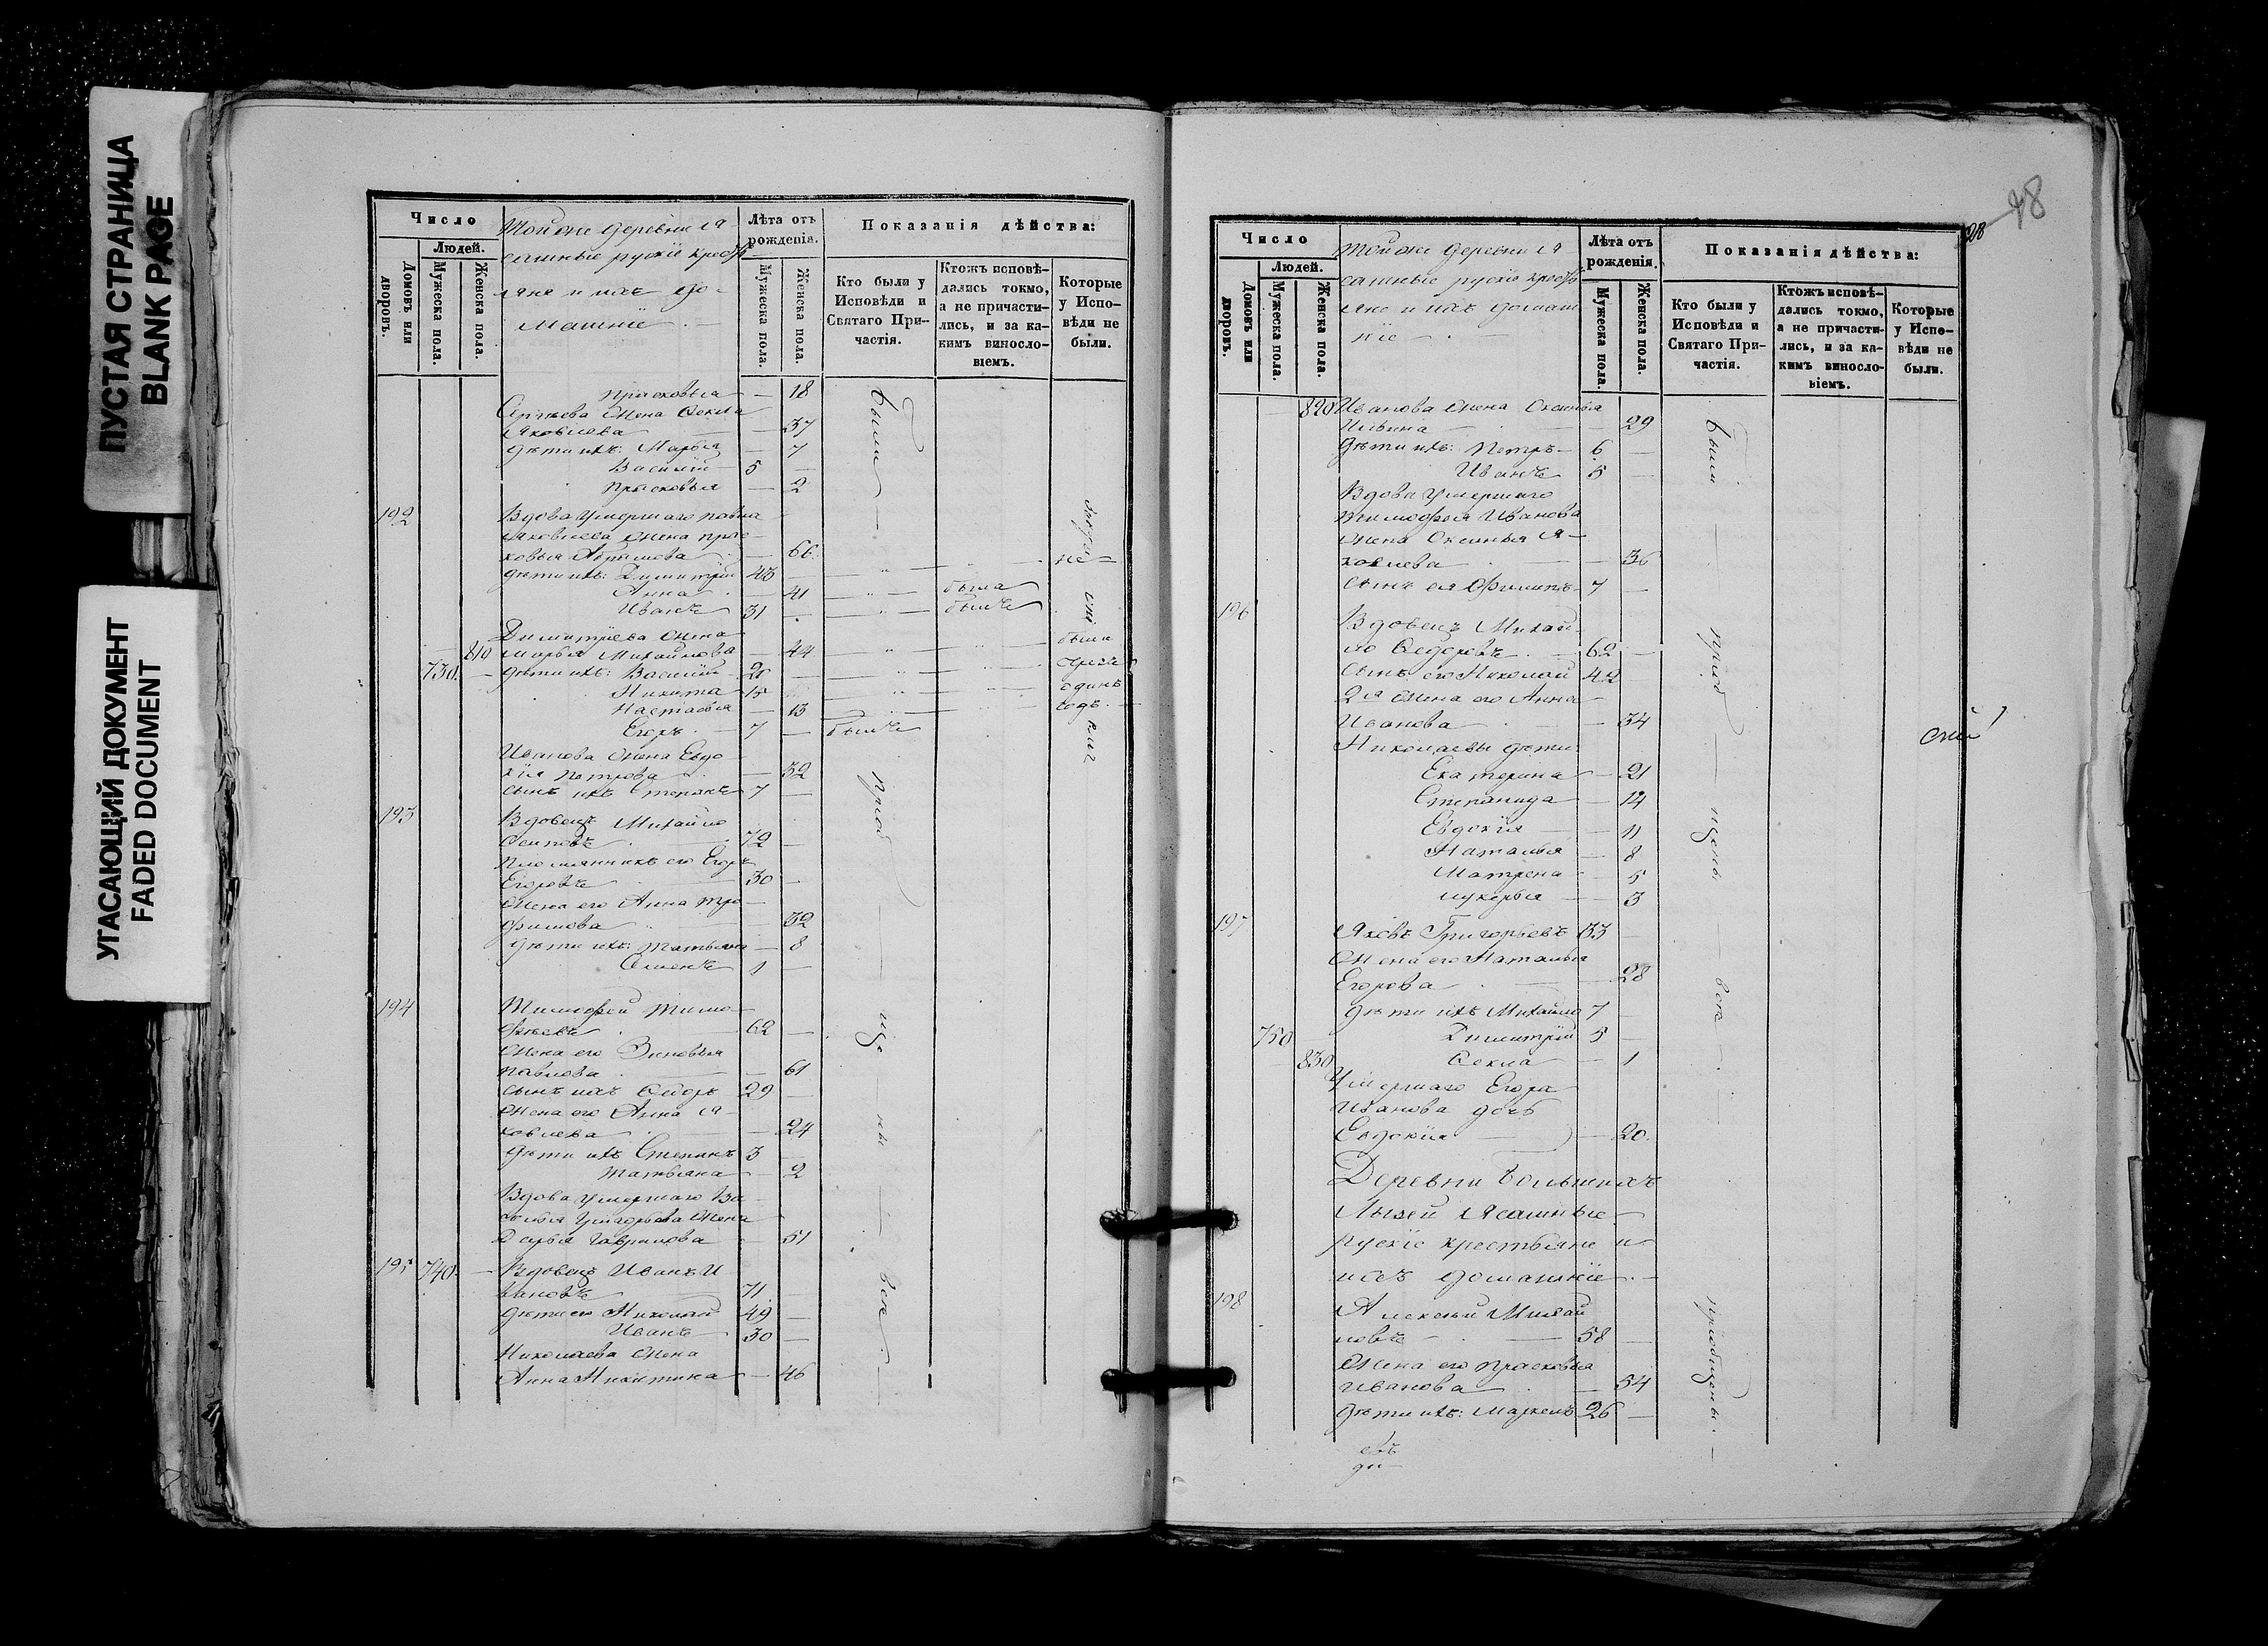 ПУСТАЯ СТРАНИЦА
BLANK PAGE
УГАСАЮЩИЙ ДОКУМЕНТ
FADED DOCUMENT
Число
Людей.
Домовъ или дворовъ.
Мужеска пола.
Женска пола.
Тойже деревни Я
сашные руские кресть
яне и ихъ до-
машние
Лѣта отъ рожденія.
Мужеска пола.
Женска пола.
Показанія дѣйства:
Кто были у Исповѣди и Святаго При-частія.
Ктожъ исповѣ-дались токмо, а не причасти-лись, и за ка-кимъ винослo-віемъ.
Которые у Испо-вѣди не были.
Прасковья — 18
жена Фекла
Яковлева — 37
дѣти ихъ: Марья — 7
Василій 5 —
Прасковья — 2
192 Вдова умершаго Павла
Яковлева жена Прас
ковья Абрамова — 66
дѣти ихъ: Димитрій 43
Анна — 41 была
Иванъ 31 былъ
Димитріева жена
810 Марья Михайлова — 44
730 дѣти ихъ: Василій 20
Никита 15
Настасья — 13
Егоръ 7 — былъ
Иванова жена Евдо
кія Петрова — 32
сынъ ихъ Степанъ 7 —
193 Вдовецъ Михайло
Осиповъ 72 —
Племянникъ его Егоръ
Егоровъ 30 —
жена его Анна Тро
фимова — 32
дѣти ихъ: Татьяна — 8
Семенъ 1 —
194 Тимофей Тимо
фѣевъ 62 —
жена его Зиновья
Павлова — 61
сынъ ихъ Федоръ 29 —
жена его Анна Я-
ковлева — 24
дѣти ихъ Степанъ 3 —
Татьяна — 2
Вдова умершаго Ва
силья Григорьева жена
Дарья Гаврилова — 51
195 740 Вдовецъ Иванъ И
вановъ 71
дѣти его Николай 49 —
Иванъ 30 —
Николаева жена
Анна Никитина — 46
были
приоб
ще
ны
всѣ
48
28
Число
Людей.
Домовъ или дворовъ.
Мужеска пола.
Женска пола.
Тойже деревни Я
сашные руские кресть
яне и ихъ домаш
ніе
Лѣта отъ рожденія.
Мужеска пола.
Женска пола.
Показанія дѣйства:
Кто были у Исповѣди и Святаго При-частія.
Ктожъ исповѣ-дались токмо, а не причасти-лись, и за ка-кимъ винослo-віемъ.
Которые у Испо-вѣди не были.
820 Иванова жена Оксинья
Ильина — 29
дѣти ихъ: Петръ 6 —
Иванъ 5 —
Вдова умершаго
Тимофея Иванова
жена Оксинья Я-
ковлева — 36
сынъ ея Филипъ 7 —
196 Вдовецъ Михай
ло Федоровъ 62 —
сынъ его Николай 42
2я жена его Анна
Иванова — 34
Николаевы дѣти
Екатерина — 21
Степанида — 14
Евдокія — 11
Наталья — 8
Матрена — 5
Лукерья — 3
197 Яковъ Григорьевъ 33 —
жена его Наталья
Егорова — 28
дѣти ихъ Михайло 7 —
750 Димитрій 5 —
830 Фекла — 1
Умершаго Егора
Иванова дочь
Евдокія — 20
Деревни Большихъ
Лызей Ясашные
руские крестьяне и
ихъ домашніе.
198 Алексѣй Михай
ловъ 58 —
жена его Прасковья
Иванова — 54
дѣти ихъ: Маркелъ 26 —
были
приоб
щены
всѣ
приобщены